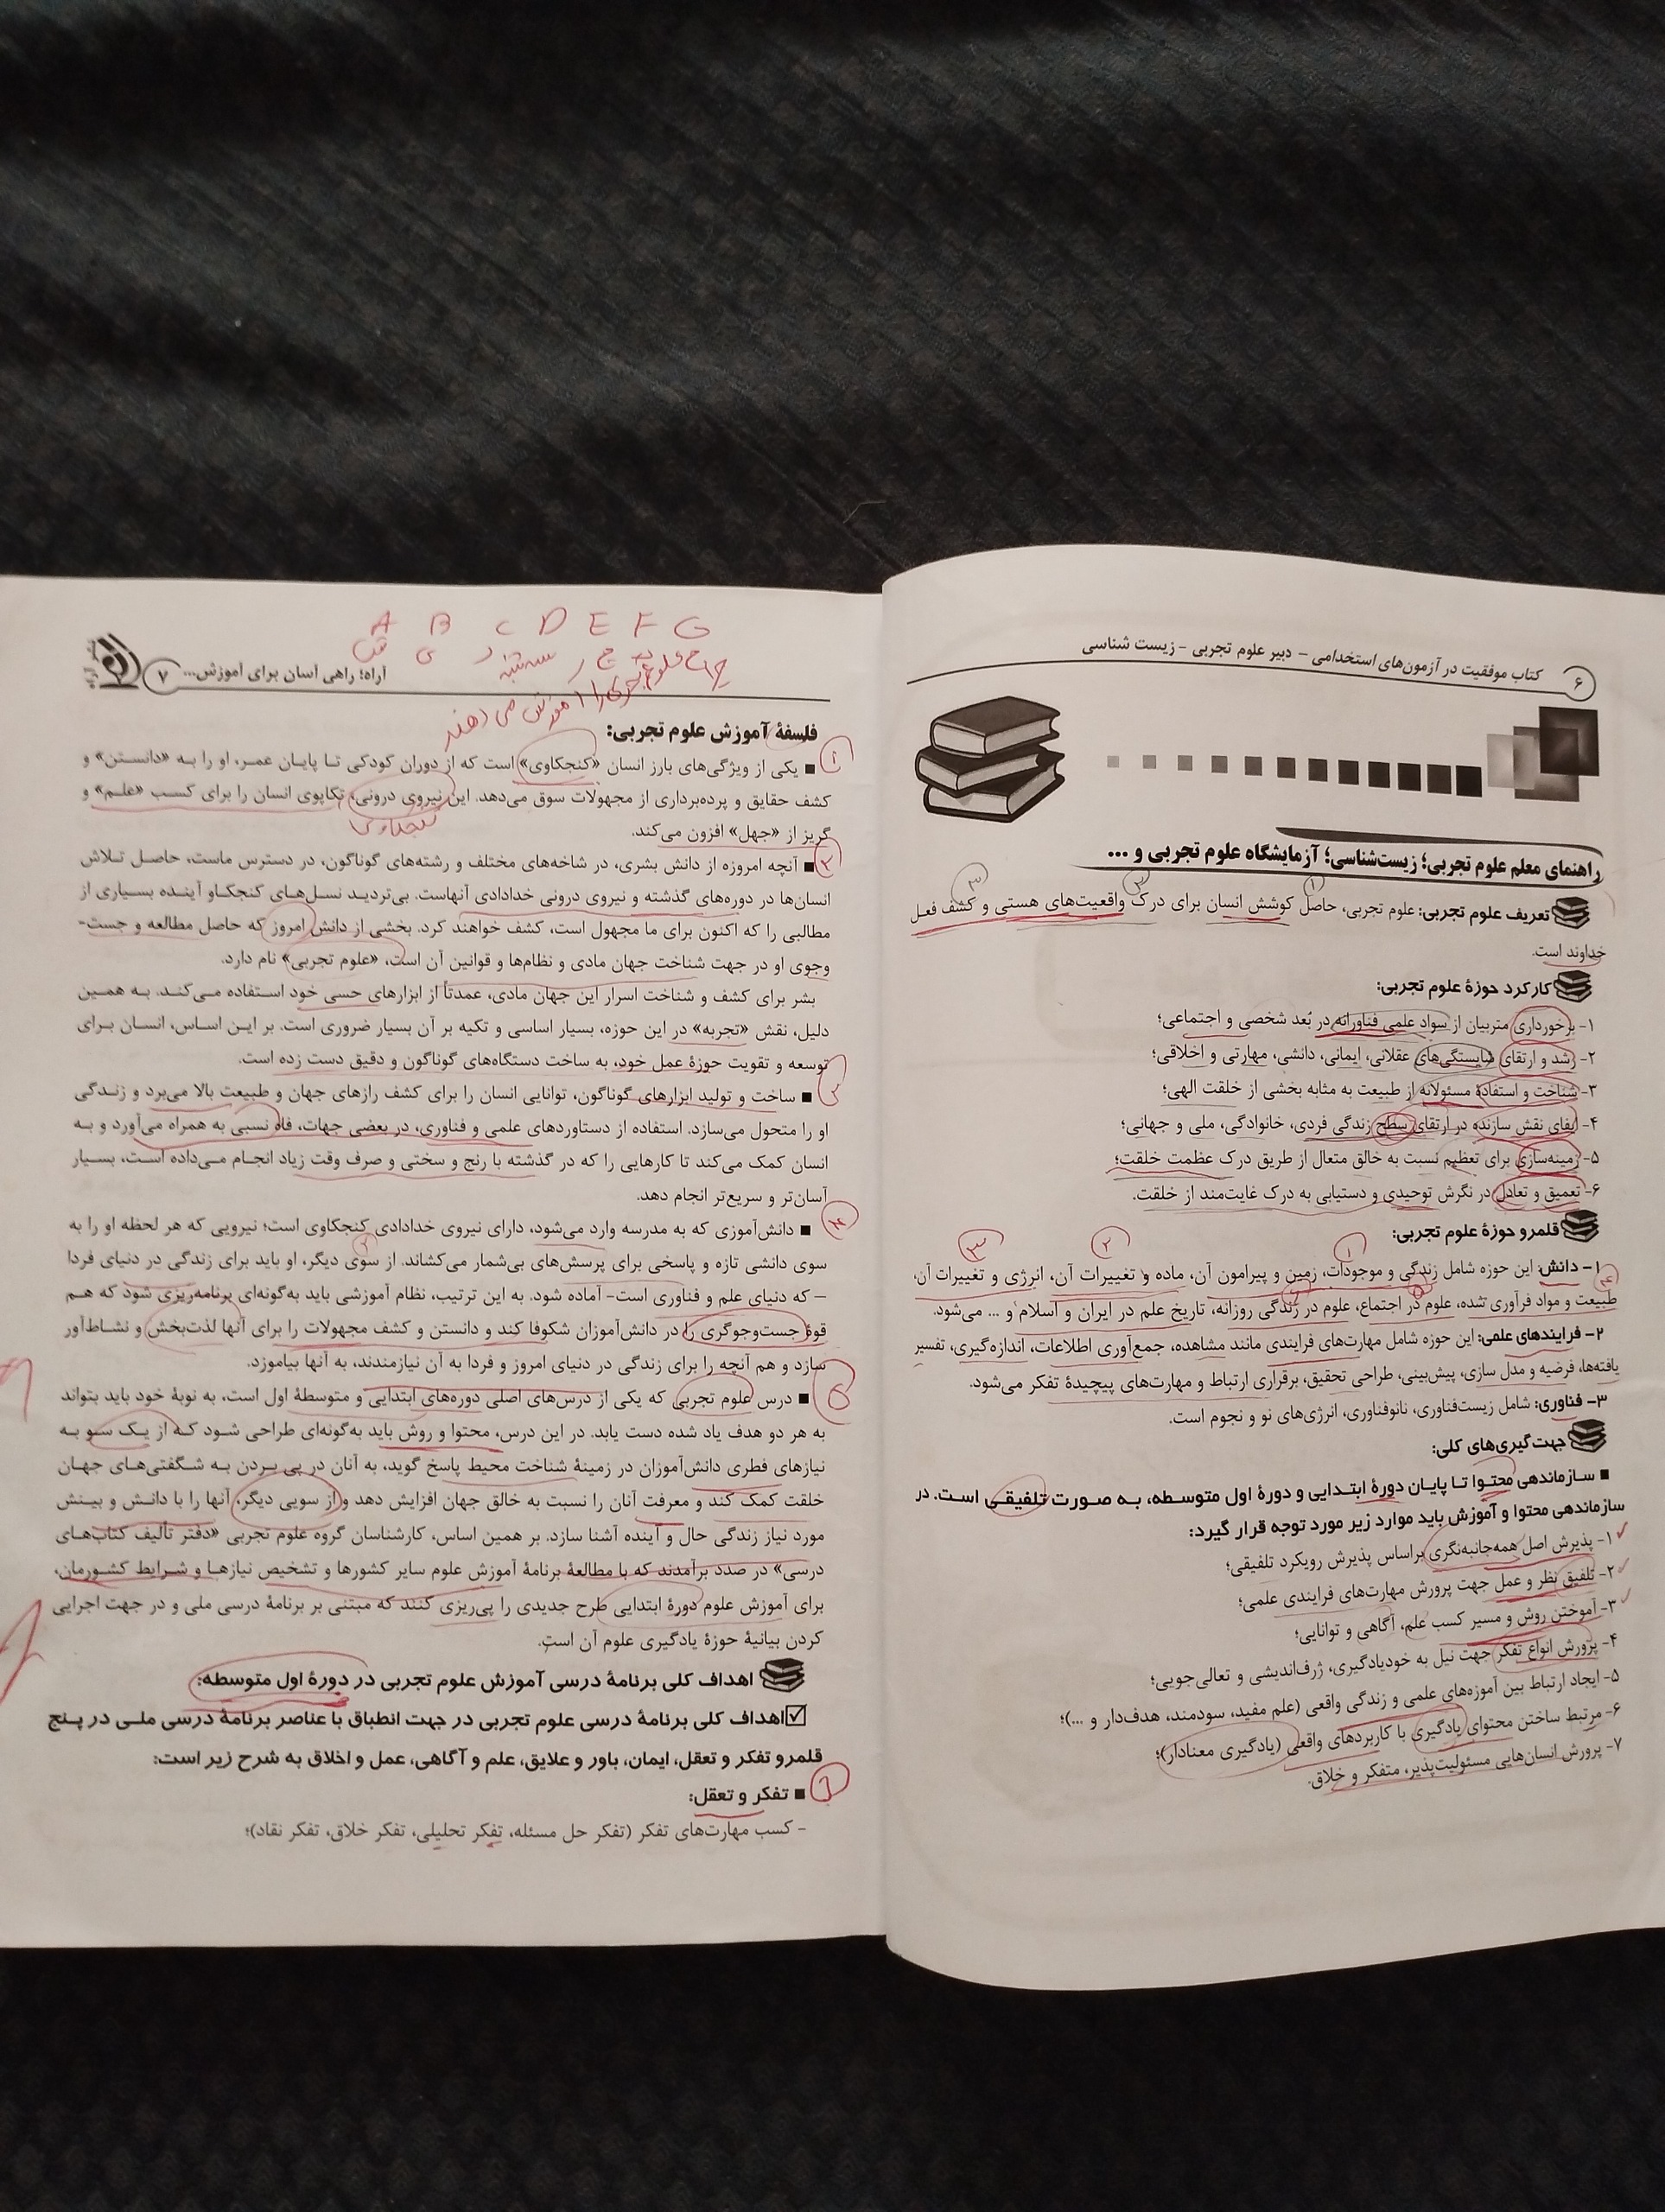 کتاب موفقیت در آزمون‌های استخدامی – دبیر علوم تجربی – زیست شناسی
۶
راهنمای معلم علوم تجربی؛ زیست‌شناسی؛ آزمایشگاه علوم تجربی و ...
تعریف علوم تجربی: علوم تجربی، حاصل کوشش انسان برای درک واقعیت‌های هستی و کشف فعل
خداوند است.
کارکرد حوزهٔ علوم تجربی:
۱- برخورداری متربیان از سواد علمی فناورانه در بُعد شخصی و اجتماعی؛
۲- رشد و ارتقای شایستگی‌های عقلانی، ایمانی، دانشی، مهارتی و اخلاقی؛
۳- شناخت و استفادهٔ مسئولانه از طبیعت به مثابه بخشی از خلقت الهی؛
۴- ایفای نقش سازنده در ارتقای سطح زندگی فردی، خانوادگی، ملی و جهانی؛
۵- زمینه‌سازی برای تعظیم نسبت به خالق متعال از طریق درک عظمت خلقت؛
۶- تعمیق و تعادل در نگرش توحیدی و دستیابی به درک غایت‌مند از خلقت.
قلمرو حوزهٔ علوم تجربی:
۱ ۲ ۳
۱- دانش: این حوزه شامل زندگی و موجودات، زمین و پیرامون آن، ماده و تغییرات آن، انرژی و تغییرات آن،
طبیعت و مواد فرآوری شده، علوم در اجتماع، علوم در زندگی روزانه، تاریخ علم در ایران و اسلام و ... می‌شود.
۲- فرایندهای علمی: این حوزه شامل مهارت‌های فرایندی مانند مشاهده، جمع‌آوری اطلاعات، اندازه‌گیری، تفسیر
یافته‌ها، فرضیه و مدل سازی، پیش‌بینی، طراحی تحقیق، برقراری ارتباط و مهارت‌های پیچیدهٔ تفکر می‌شود.
۳- فناوری: شامل زیست‌فناوری، نانوفناوری، انرژی‌های نو و نجوم است.
جهت‌گیری‌های کلی:
■ سازماندهی محتوا تا پایان دورهٔ ابتدایی و دورهٔ اول متوسطه، به صورت تلفیقی است. در
سازماندهی محتوا و آموزش باید موارد زیر مورد توجه قرار گیرد:
۱- پذیرش اصل همه‌جانبه‌نگری براساس پذیرش رویکرد تلفیقی؛
۲- تلفیق نظر و عمل جهت پرورش مهارت‌های فرایندی علمی؛
۳- آموختن روش و مسیر کسب علم، آگاهی و توانایی؛
۴- پرورش انواع تفکر جهت نیل به خودیادگیری، ژرف‌اندیشی و تعالی‌جویی؛
۵- ایجاد ارتباط بین آموزه‌های علمی و زندگی واقعی (علم مفید، سودمند، هدف‌دار و ...)؛
۶- مرتبط ساختن محتوای یادگیری با کاربردهای واقعی (یادگیری معنادار)؛
۷- پرورش انسان‌هایی مسئولیت‌پذیر، متفکر و خلاق.
A B C D E F G
آراه؛ راهی آسان برای آموزش... ۷
چرا علوم تجربی را آموزش می دهند
فلسفهٔ آموزش علوم تجربی:
■ یکی از ویژگی‌های بارز انسان «کنجکاوی» است که از دوران کودکی تا پایان عمر، او را به «دانستن» و
کشف حقایق و پرده‌برداری از مجهولات سوق می‌دهد. این نیروی درونی، تکاپوی انسان را برای کسب «علم» و
کنجکاوی
گریز از «جهل» افزون می‌کند.
■ آنچه امروزه از دانش بشری، در شاخه‌های مختلف و رشته‌های گوناگون، در دسترس ماست، حاصل تلاش
انسان‌ها در دوره‌های گذشته و نیروی درونی خدادادی آنهاست. بی‌تردید نسل‌های کنجکاو آینده بسیاری از
مطالبی را که اکنون برای ما مجهول است، کشف خواهند کرد. بخشی از دانش امروز که حاصل مطالعه و جست-
وجوی او در جهت شناخت جهان مادی و نظام‌ها و قوانین آن است، «علوم تجربی» نام دارد.
بشر برای کشف و شناخت اسرار این جهان مادی، عمدتاً از ابزارهای حسی خود استفاده می‌کند. به همین
دلیل، نقش «تجربه» در این حوزه، بسیار اساسی و تکیه بر آن بسیار ضروری است. بر این اساس، انسان برای
توسعه و تقویت حوزهٔ عمل خود، به ساخت دستگاه‌های گوناگون و دقیق دست زده است.
■ ساخت و تولید ابزارهای گوناگون، توانایی انسان را برای کشف رازهای جهان و طبیعت بالا می‌برد و زندگی
او را متحول می‌سازد. استفاده از دستاوردهای علمی و فناوری، در بعضی جهات، رفاه نسبی به همراه می‌آورد و به
انسان کمک می‌کند تا کارهایی را که در گذشته با رنج و سختی و صرف وقت زیاد انجام می‌داده است، بسیار
آسان‌تر و سریع‌تر انجام دهد.
■ دانش‌آموزی که به مدرسه وارد می‌شود، دارای نیروی خدادادی کنجکاوی است؛ نیرویی که هر لحظه او را به
سوی دانشی تازه و پاسخی برای پرسش‌های بی‌شمار می‌کشاند. از سوی دیگر، او باید برای زندگی در دنیای فردا
– که دنیای علم و فناوری است- آماده شود. به این ترتیب، نظام آموزشی باید به‌گونه‌ای برنامه‌ریزی شود که هم
قوهٔ جست‌وجوگری را در دانش‌آموزان شکوفا کند و دانستن و کشف مجهولات را برای آنها لذت‌بخش و نشاط‌آور
سازد و هم آنچه را برای زندگی در دنیای امروز و فردا به آن نیازمندند، به آنها بیاموزد.
■ درس علوم تجربی که یکی از درس‌های اصلی دوره‌های ابتدایی و متوسطهٔ اول است، به نوبهٔ خود باید بتواند
به هر دو هدف یاد شده دست یابد. در این درس، محتوا و روش باید به‌گونه‌ای طراحی شود که از یک سو به
نیازهای فطری دانش‌آموزان در زمینهٔ شناخت محیط پاسخ گوید، به آنان در پی بردن به شگفتی‌های جهان
خلقت کمک کند و معرفت آنان را نسبت به خالق جهان افزایش دهد و از سویی دیگر، آنها را با دانش و بینش
مورد نیاز زندگی حال و آینده آشنا سازد. بر همین اساس، کارشناسان گروه علوم تجربی «دفتر تألیف کتاب‌های
درسی» در صدد برآمدند که با مطالعهٔ برنامهٔ آموزش علوم سایر کشورها و تشخیص نیازها و شرایط کشورمان،
برای آموزش علوم دورهٔ ابتدایی طرح جدیدی را پی‌ریزی کنند که مبتنی بر برنامهٔ درسی ملی و در جهت اجرایی
کردن بیانیهٔ حوزهٔ یادگیری علوم آن است.
اهداف کلی برنامهٔ درسی آموزش علوم تجربی در دورهٔ اول متوسطه:
اهداف کلی برنامهٔ درسی علوم تجربی در جهت انطباق با عناصر برنامهٔ درسی ملی در پنج
قلمرو تفکر و تعقل، ایمان، باور و علایق، علم و آگاهی، عمل و اخلاق به شرح زیر است:
■ تفکر و تعقل:
- کسب مهارت‌های تفکر (تفکر حل مسئله، تفکر تحلیلی، تفکر خلاق، تفکر نقاد)؛